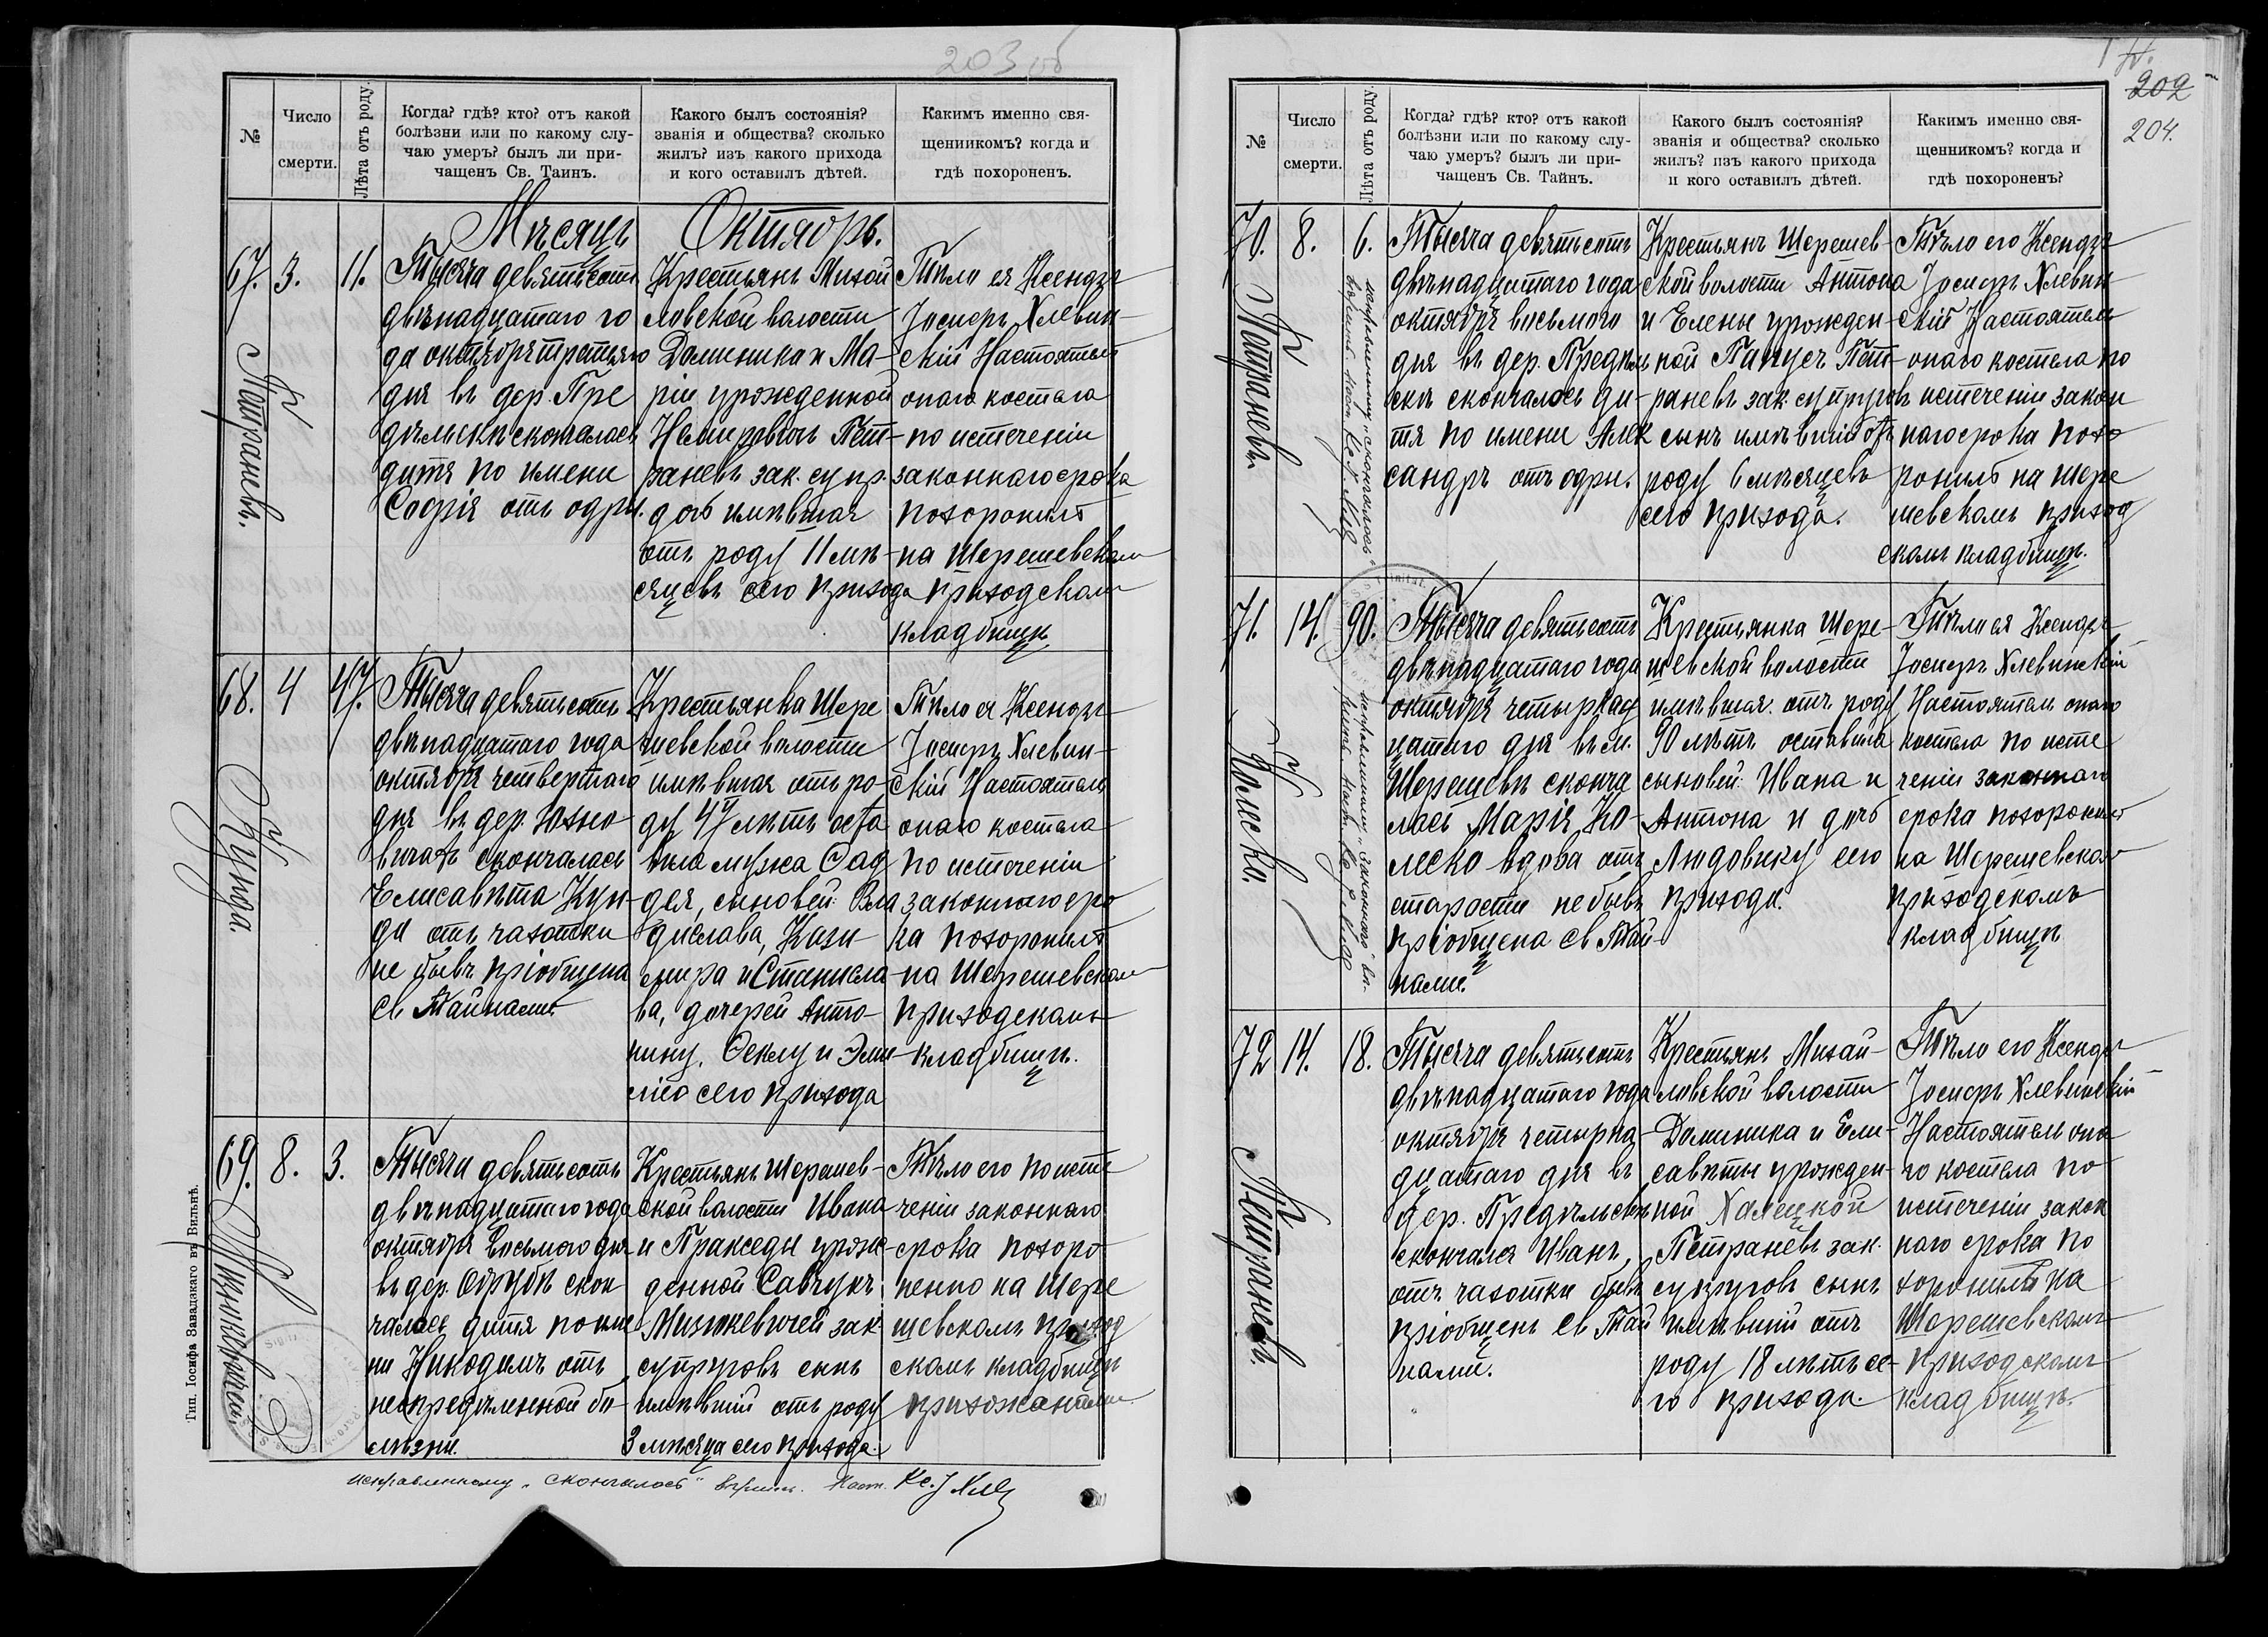 203 об
№
Число
смерти.
Лѣта отъ роду.
Когда? гдѣ? кто? отъ какой
болѣзни или по какому слу-
чаю умеръ? былъ ли при-
чащенъ Св. Таинъ.
Какого былъ состоянія?
званія и общества? сколько
жилъ? изъ какого прихода
и кого оставилъ дѣтей.
Какимъ именно свя-
щенникомъ? когда и
гдѣ похороненъ.
Мѣсяцъ Октябрь.
67.
3.
11.
Петраневъ.
Тысяча девятьсотъ
двѣнадцатаго го
да октября третьяго
дня въ дер. Пре
дѣльскѣ скончалась
дитя по имени
Софія отъ одры.
Крестьянъ Михай
ловской волости
Доминика и Ма-
ріи урожденной
Немировичъ Пет-
раневъ зак. супр.
дочь имѣвшая
отъ роду 11 мѣ-
сяцевъ сего прихода
Тѣло ея Ксендзъ
Іосифъ Хлевин-
скій Настоятель
онаго костела
по истеченіи
законнаго срока
похоронилъ
на Шерешевскомъ
приходскомъ
кладбищѣ
68.
4
47.
Кунда.
Тысяча девятьсотъ
двѣнадцатаго года
октября четвертаго
дня въ дер. Юхно
вичахъ скончалась
Елисавета Кун-
да отъ чахотки
не бывъ пріобщена
Св Тайнами.
Крестьянка Шере
шевской волости
имѣвшая отъ ро-
ду 47 лѣтъ оста
вила мужа Фад
дея, сыновей: Вла
дислава, Кази-
мира и Станисла
ва, дочерей Анто-
нину, Феклу и Эми-
лію сего прихода
Тѣло ея Ксендзъ
Іосифъ Хлевин-
скій Настоятель
онаго костела
по истеченіи
законнаго сро
ка похоронилъ
на Шерешевскомъ
приходскомъ
кладбищѣ.
69.
8.
3.
Мизикевичей.
Тысяча девятьсотъ
двѣнадцатаго года
октября восьмого дня
въ дер. Обрубѣ скон
чалось дитя по име
ни Никодимъ отъ
неопредѣленной бо
лѣзни.
Крестьянъ Шерешев-
ской волости Ивана
и Пракседы урож-
денной Савчукъ
Мизикевичей зак.
супруговъ сынъ
имѣвшій отъ роду
3 мѣсяца сего прихода.
Тѣло его по исте
ченіи законнаго
срока похоро
нено на Шере
шевскомъ приход
скомъ кладбищѣ
прихожанами
исправленному „скончалось“ вѣрить. Наст. Кс. І Хле
Тип. Іосифа Завадзкаго въ Вильнѣ.
202
204.
№
Число
смерти.
Лѣта отъ роду.
Когда? гдѣ? кто? отъ какой
болѣзни или по какому слу-
чаю умеръ? былъ ли при-
чащенъ Св. Тайнъ.
Какого былъ состоянія?
званія и общества? сколько
жилъ? изъ какого прихода
и кого оставилъ дѣтей.
Какимъ именно свя-
щенникомъ? когда и
гдѣ похороненъ?
70.
8.
6.
Петраневъ.
исправленному „скончалось“
вѣрить Наст. Кс. І. Хле
Тысяча девятьсотъ
двѣнадцатаго года
октября восьмого
дня въ дер. Предѣль
скѣ скончалось ди-
тя по имени Алек
сандръ отъ одры.
Крестьянъ Шерешев-
ской волости Антона
и Елены урожден-
ной Панусъ Пет-
раневъ зак. супруговъ
сынъ имѣвшій отъ
роду 6 мѣсяцевъ
сего прихода.
Тѣло его Ксендзъ
Іосифъ Хлевин-
скій Настоятель
онаго костела по
истеченіи закон
наго срока похо
ронилъ на Шере
шевскомъ приход
скомъ кладбищѣ.
71.
14.
90.
Колеско.
Тысяча девятьсотъ
двѣнадцатаго года
октября четырнад
цатаго дня въ м.
Шерешевѣ сконча
лась Марія Ко-
леско вдова отъ
старости не бывъ
пріобщена Св Тай-
нами.
Крестьянка Шере-
шевской волости
имѣвшая отъ роду
90 лѣтъ оставила
сыновей: Ивана и
Антона и дочь
Людовику сего
прихода.
Тѣло ея Ксендзъ
Іосифъ Хлевинскій
Настоятель онаго
костела по исте
ченіи законнаго
срока похоронилъ
на Шерешевскомъ
приходскомъ
кладбищѣ
72
14.
18.
Петраневъ.
Тысяча девятьсотъ
двѣнадцатаго года
октября четырна-
дцатаго дня въ
дер. Предѣльскѣ
скончался Иванъ,
отъ чахотки бывъ
пріобщенъ Св Тай
нами.
Крестьянъ Михай-
ловской волости
Доминика и Ели-
саветы урожден-
ной Халецкой
Петраневъ зак.
супруговъ сынъ
имѣвшій отъ
роду 18 лѣтъ се-
го прихода.
Тѣло его Ксендзъ
Іосифъ Хлевинскій
Настоятель она
го костела по
истеченіи закон
наго срока по
хоронилъ на
Шерешевскомъ
приходскомъ
кладбищѣ.